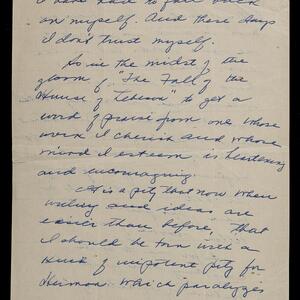 I have had to fall back
on myself. And these days
I don't trust myself.
So in the midst of the
gloom of "The Fall of the
House of" to get a
word of praise from one whose
work I cherish and whose
mind I esteem is heartening
and encouraging.
It is a pity that now when
writing and ideas are
easier than before, that
I should be torn with a
kind of impotent pity for
Herman. Which paralyzes